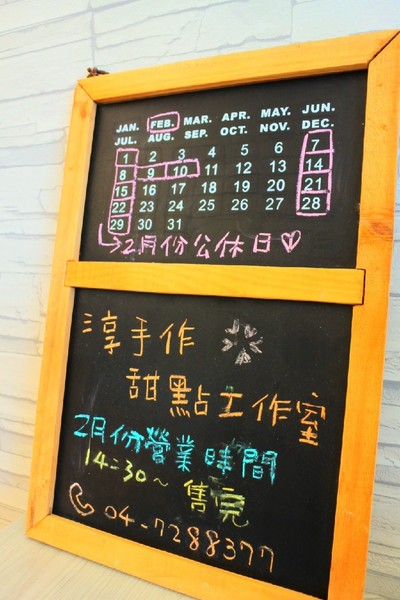 JAN. FEB. MAR. APR. MAY. JUN.
JUL. AUG. SEP. OCT. NOV. DEC.
1 2 3 4 5 6 7
8 9 10 11 12 13 14
15 16 17 18 19 20 21
22 23 24 25 26 27 28
29 30 31
2月份公休日♡
淳手作
甜點工作室
2月份營業時間
14:30~ 售完
04-7288377